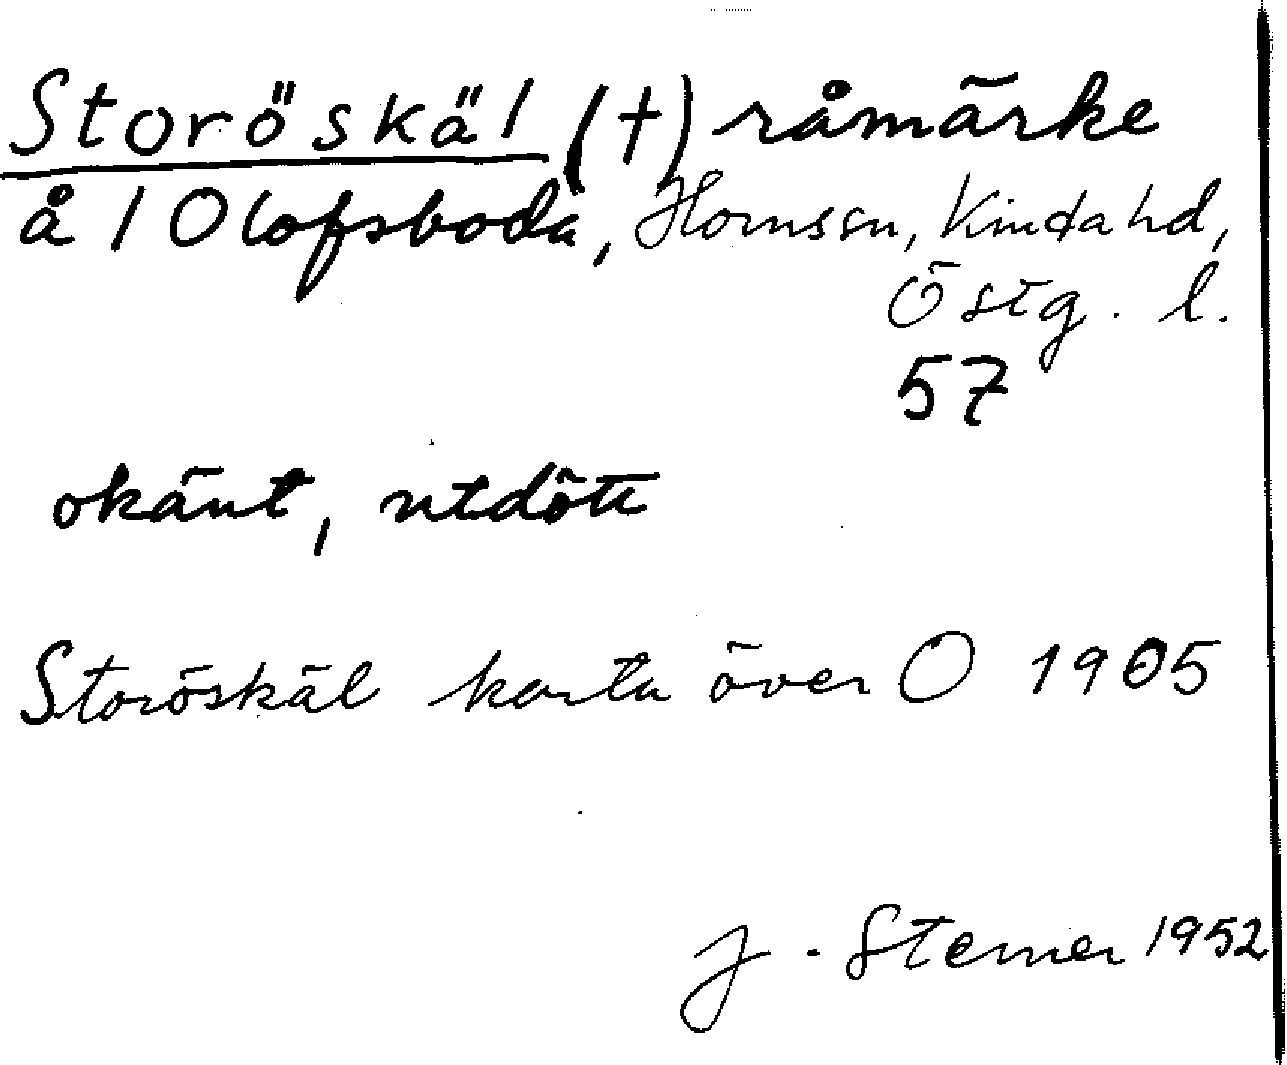 Storöskäl (†) råmärke
å 1 Olofsboda, Horns sn, Kinda hd,
Östg. l.
57
okänt, utdött
Storöskäl karta över O 1905
J. Sterner 1952